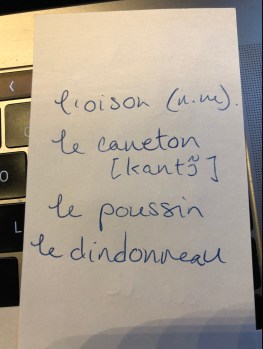 l'oison (n.m).
le caneton
[kantɔ̃]
le poussin
le dindonneau
L